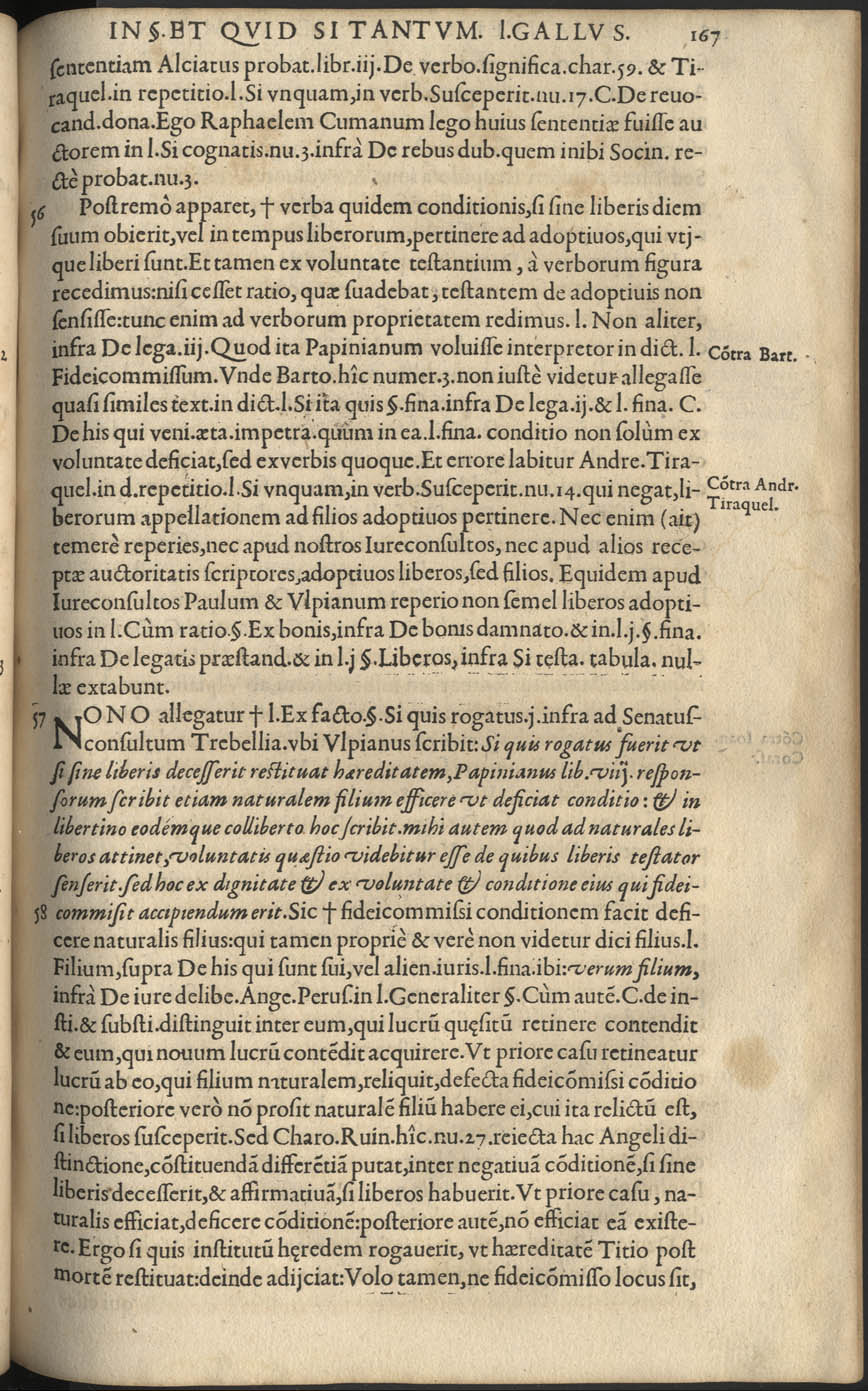 IN §. ET QVID SI TANTVM. l. GALLVS. 167
sententiam Alciatus probat.libr.iij.De verbo.significa.char.59. & Ti-
raquel.in repetitio.l.Si vnquam,in verb.Susceperit.nu.17.C.De reuo-
cand.dona.Ego Raphaelem Cumanum lego huius sententiæ fuisse au
ctorem in l.Si cognatis.nu.3.infrà De rebus dub.quem inibi Socin. re-
ctè probat.nu.3.
56 Postremò apparet, † verba quidem conditionis,si sine liberis diem
suum obierit,vel in tempus liberorum,pertinere ad adoptiuos,qui vtj-
que liberi sunt.Et tamen ex voluntate testantium, à verborum figura
recedimus:nisi cesset ratio, quæ suadebat, testantem de adoptiuis non
sensisse:tunc enim ad verborum proprietatem redimus. l. Non aliter,
infra De lega.iij.Quod ita Papinianum voluisse interpretor in dict. l.
Cõtra Bart.
Fideicommissum.Vnde Barto.hîc numer.3.non iustè videtur allegasse
quasi similes text.in dict.l.Si ita quis §.fina.infra De lega.ij.& l. fina. C.
De his qui veni.æta.impetra.quùm in ea.l.fina. conditio non solùm ex
voluntate deficiat,sed ex verbis quoque.Et errore labitur Andre.Tira-
quel.in d.repetitio.l.Si vnquam,in verb.Susceperit.nu.14.qui negat,li-
Cõtra Andr.
Tiraquel.
berorum appellationem ad filios adoptiuos pertinere. Nec enim (ait)
temerè reperies,nec apud nostros Iureconsultos, nec apud alios rece-
ptæ auctoritatis scriptores,adoptiuos liberos,sed filios. Equidem apud
Iureconsultos Paulum & Vlpianum reperio non semel liberos adopti-
uos in l.Cùm ratio.§.Ex bonis,infra De bonis damnato.& in.l.j.§.fina.
infra De legatis præstand.& in l.j §.Liberos, infra Si testa. tabula. nul-
læ extabunt.
57 NONO allegatur † l.Ex facto.§.Si quis rogatus.j.infra ad Senatus-
consultum Trebellia.vbi Vlpianus scribit: Si quis rogatus fuerit vt
si sine liberis decesserit restituat hæreditatem, Papinianus lib.viij. respon-
sorum scribit etiam naturalem filium efficere vt deficiat conditio: & in
libertino eodémque colliberto hoc scribit.mihi autem quod ad naturales li-
beros attinet,voluntatis quæstio videbitur esse de quibus liberis testator
senserit.sed hoc ex dignitate & ex voluntate & conditione eius qui fidei-
58 commisit accipiendum erit.Sic † fideicommissi conditionem facit defi-
cere naturalis filius:qui tamen propriè & verè non videtur dici filius.l.
Filium,supra De his qui sunt sui,vel alien.iuris.l.fina.ibi:verum filium,
infrà De iure delibe.Ange.Perus.in l.Generaliter §.Cùm autē.C.de in-
sti.& substi.distinguit inter eum,qui lucrū quęsitū retinere contendit
& eum,qui nouum lucrū contēdit acquirere.Vt priore casu retineatur
lucrū ab eo,qui filium naturalem,reliquit,defecta fideicōmissi cōditio
ne:posteriore verò nō prosit naturalē filiū habere ei,cui ita relictū est,
si liberos susceperit.Sed Charo.Ruin.hîc.nu.27.reiecta hac Angeli di-
stinctione,cōstituendā differētiā putat,inter negatiuā cōditionē,si sine
liberis decesserit,& affirmatiuā,si liberos habuerit.Vt priore casu, na-
turalis efficiat,deficere cōditionē:posteriore autē,nō efficiat eā existe-
re. Ergo si quis institutū hęredem rogauerit, vt hæreditatē Titio post
mortē restituat:deinde adijciat:Volo tamen,ne fideicōmisso locus sit,